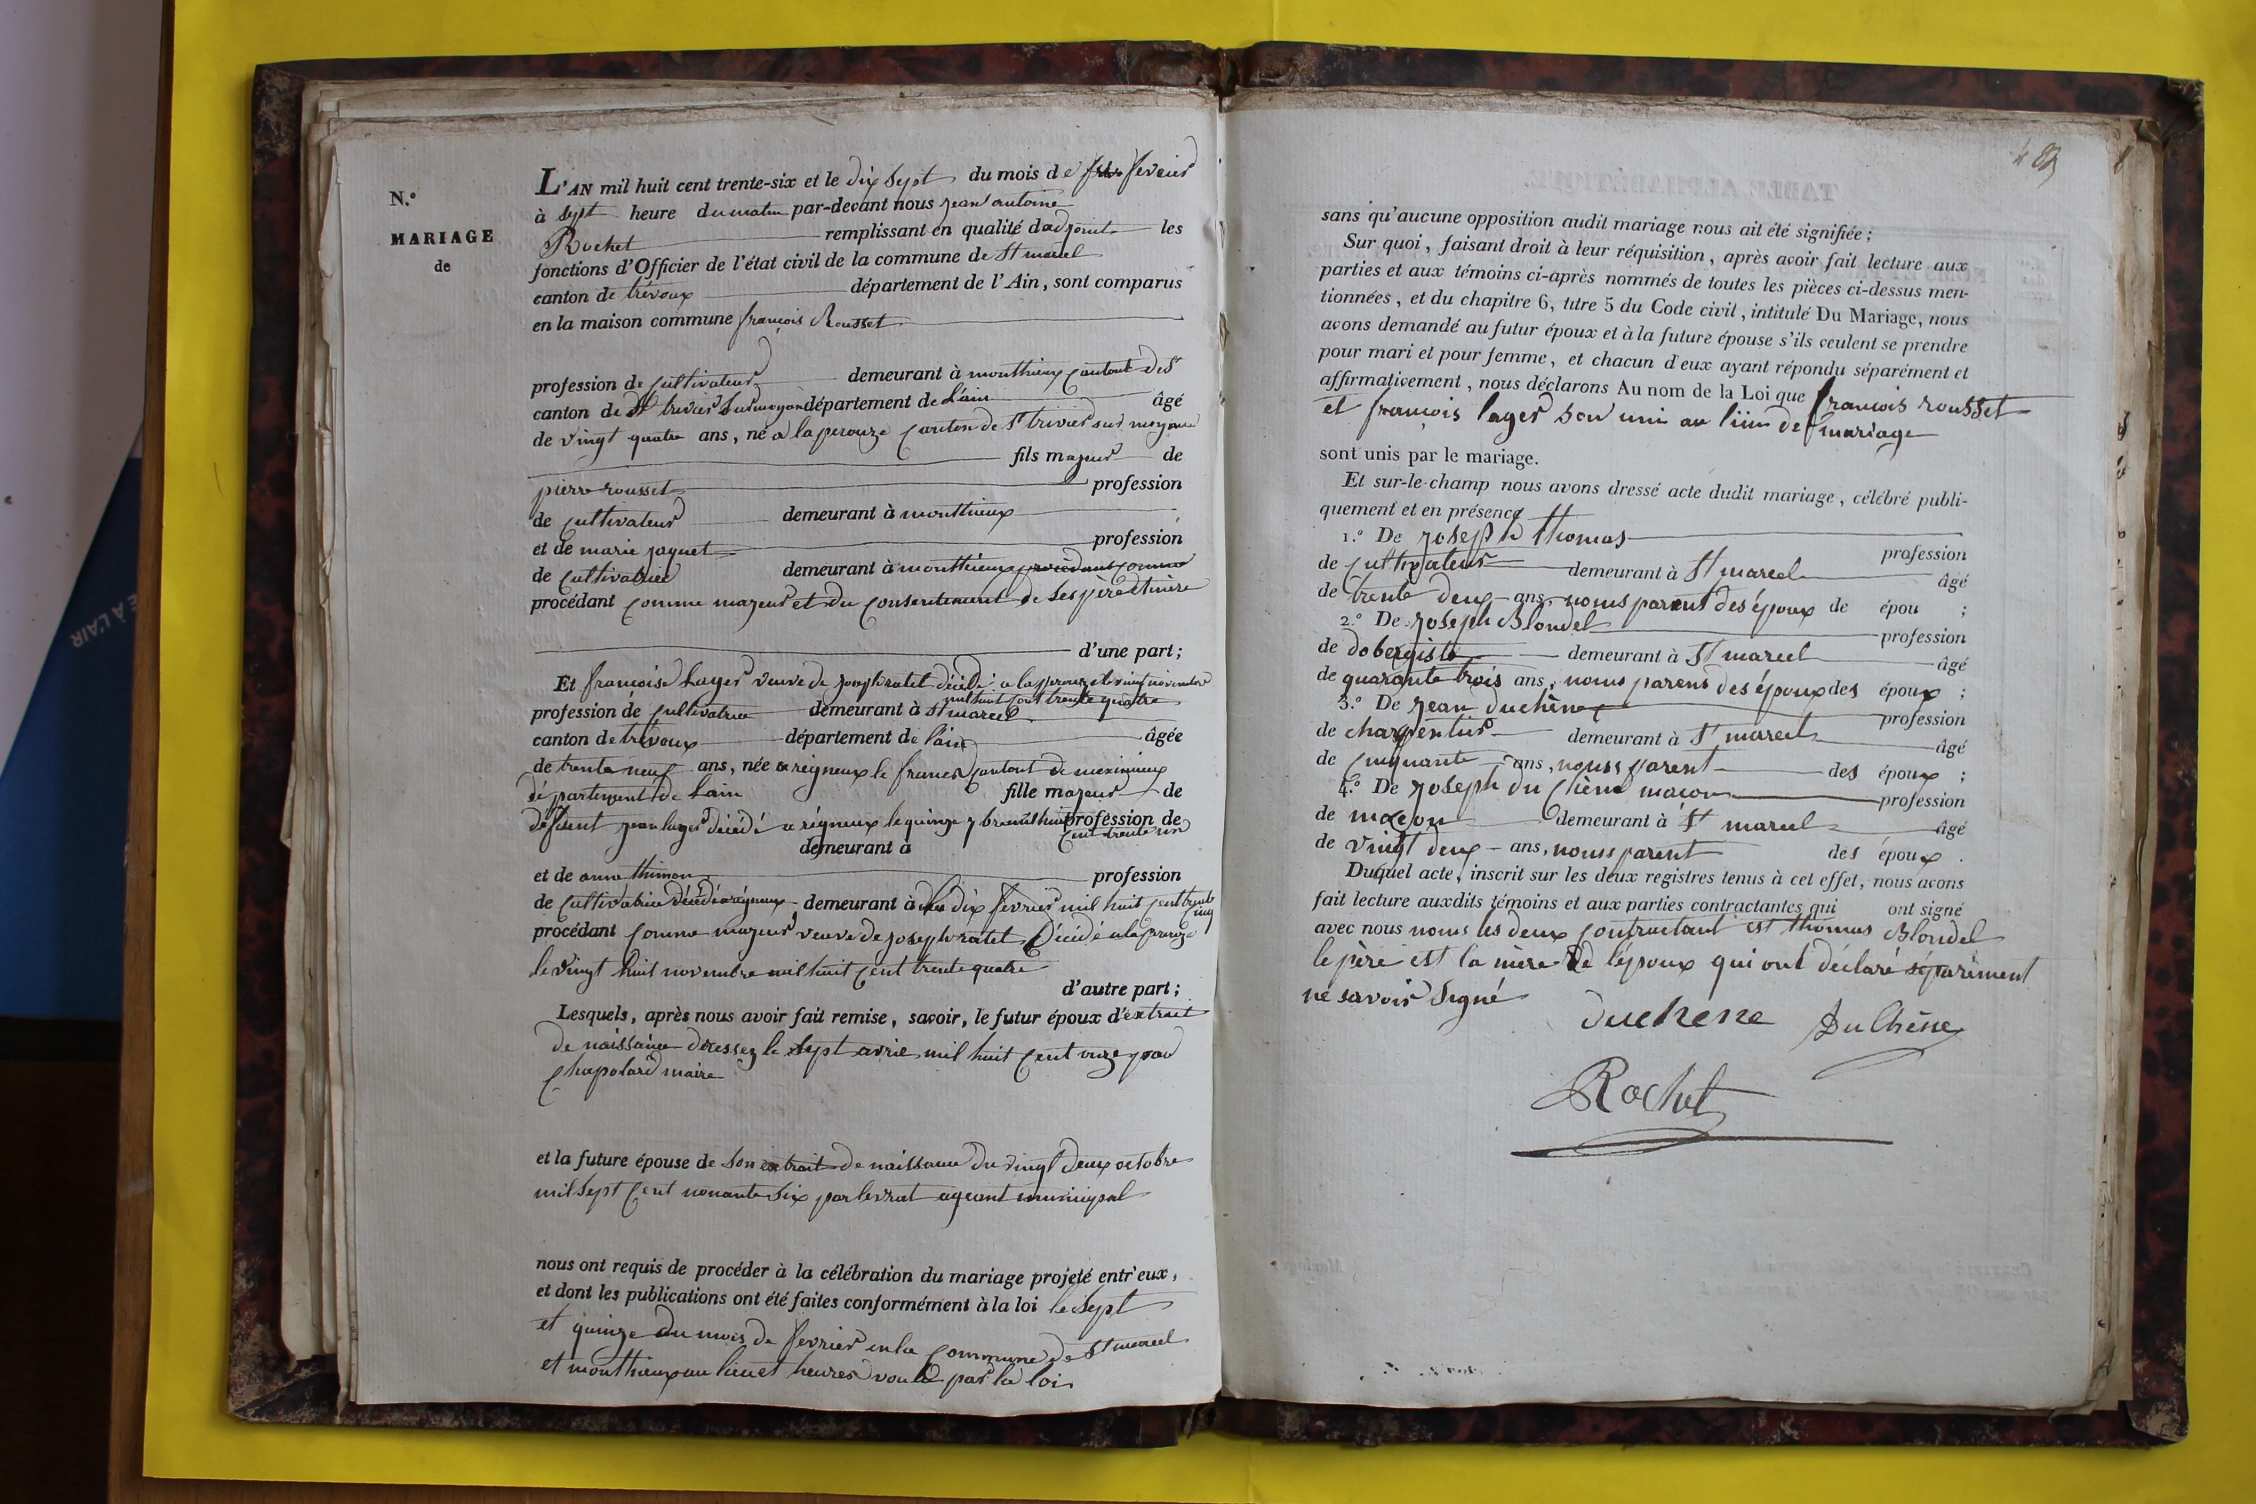 N.°
MARIAGE
de
L'AN mil huit cent trente-six et le dix sept du mois de fevrier
à sept heure du matin par-devant nous jean antoine
Rochet remplissant en qualité dadjoint les
fonctions d'Officier de l'état civil de la commune de St marcel
canton de trévoux département de l'Ain, sont comparus
en la maison commune françois Rousset
profession de cultivateur demeurant à monthieux cantont des
canton de St trivier sur moyon département de Lain âgé
de vingt quatre ans, né a la perouze canton de St trivier sur moyons
fils majeur de
pierre rousset profession
de cultivateur demeurant à monthieux
et de marie jaquet profession
de cultivatrice demeurant à monthieux procèdant comme
procédant comme majeur et du consentement de ses père et mère
d'une part;
Et francoise Lager veuve de joseph ratet décédé a la perouze le vingt novembre
mil huit cent trente quatre
profession de cultivatrice demeurant à St marcel
canton de trévoux département de lain âgée
de trente neuf ans, née a reigneux le franc cantont de meximieux
département de Lain fille majeur de
défunt jean lager décédé a rigneux le quinze 7bre mil huit profession de
cent trente un
demeurant à
et de anne thimon profession
de cultivatrice décédé a rigneux demeurant à le dix fevrier mil huit cent trente
cinq
procédant comme majeur veuve de joseph ratet décédé a la perouze
le vingt huit novembre mil huit cent trente quatre
d'autre part;
Lesquels, après nous avoir fait remise, savoir, le futur époux d'extrait
de naissance dressez le sept avril mil huit cent onze par
chapolard maire
et la future épouse de son extrait de naissance du vingt deux octobre
mil sept cent nonante six par levrat ageant municipal
nous ont requis de procéder à la célébration du mariage projeté entr'eux,
et dont les publications ont été faites conformément à la loi le sept
et quinze du mois de fevrier en la commune de St marcel
et monthieux au lieu et heures voulue par la loi
83
sans qu'aucune opposition audit mariage nous ait été signifiée;
Sur quoi, faisant droit à leur réquisition, après avoir fait lecture aux
parties et aux témoins ci-après nommés de toutes les pièces ci-dessus men-
tionnées, et du chapitre 6, titre 5 du Code civil, intitulé Du Mariage, nous
avons demandé au futur époux et à la future épouse s'ils veulent se prendre
pour mari et pour femme, et chacun d'eux ayant répondu séparément et
affirmativement, nous déclarons Au nom de la Loi que francois rousset
et françois lager son uni au liin de mariage
sont unis par le mariage.
Et sur-le-champ nous avons dressé acte dudit mariage, célébré publi-
quement et en présence
1.° De joseph thomas profession
de cultivateur demeurant à St marcel âgé
de trente deux ans, nomis parent des époux de épou ;
2.° De joseph Blondel profession
de dobergiste demeurant à St marcel âgé
de quarante trois ans, nomis parens des époux des époux ;
3.° De jean duchène profession
de charpentier demeurant à St marcel âgé
de cinquante ans, nomis parent des époux ;
4.° De joseph du chène macon profession
de maçon demeurant à St marcel âgé
de vingt deux ans, nomis parent des époux .
Duquel acte, inscrit sur les deux registres tenus à cet effet, nous avons
fait lecture auxdits témoins et aux parties contractantes qui ont signé
avec nous nomis les deux contractant est thomas Blondel
le père est la mère de lépoux qui ont déclaré séparément
ne savoir signé
duchene DuChêne
Rochet